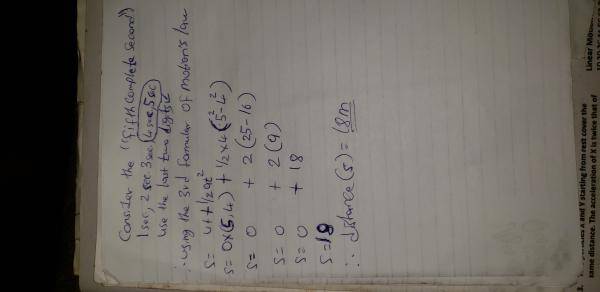 Consider the "(fifth complete second)
1sec, 2 sec 3sec (4sec, 5sec)
Use the last two digits
∴ using the 3rd formular of motion's law
S= ut + 1/2at²
S= 0x(5,4) + 1/2x4(5²-4²)
S= 0 + 2(25-16)
S= 0 + 2(9)
S= 0 + 18
S=18
∴ distance(s) = 18m
3.
A and Y starting from rest cover the
same distance. The acceleration of X is twice that of
Linear